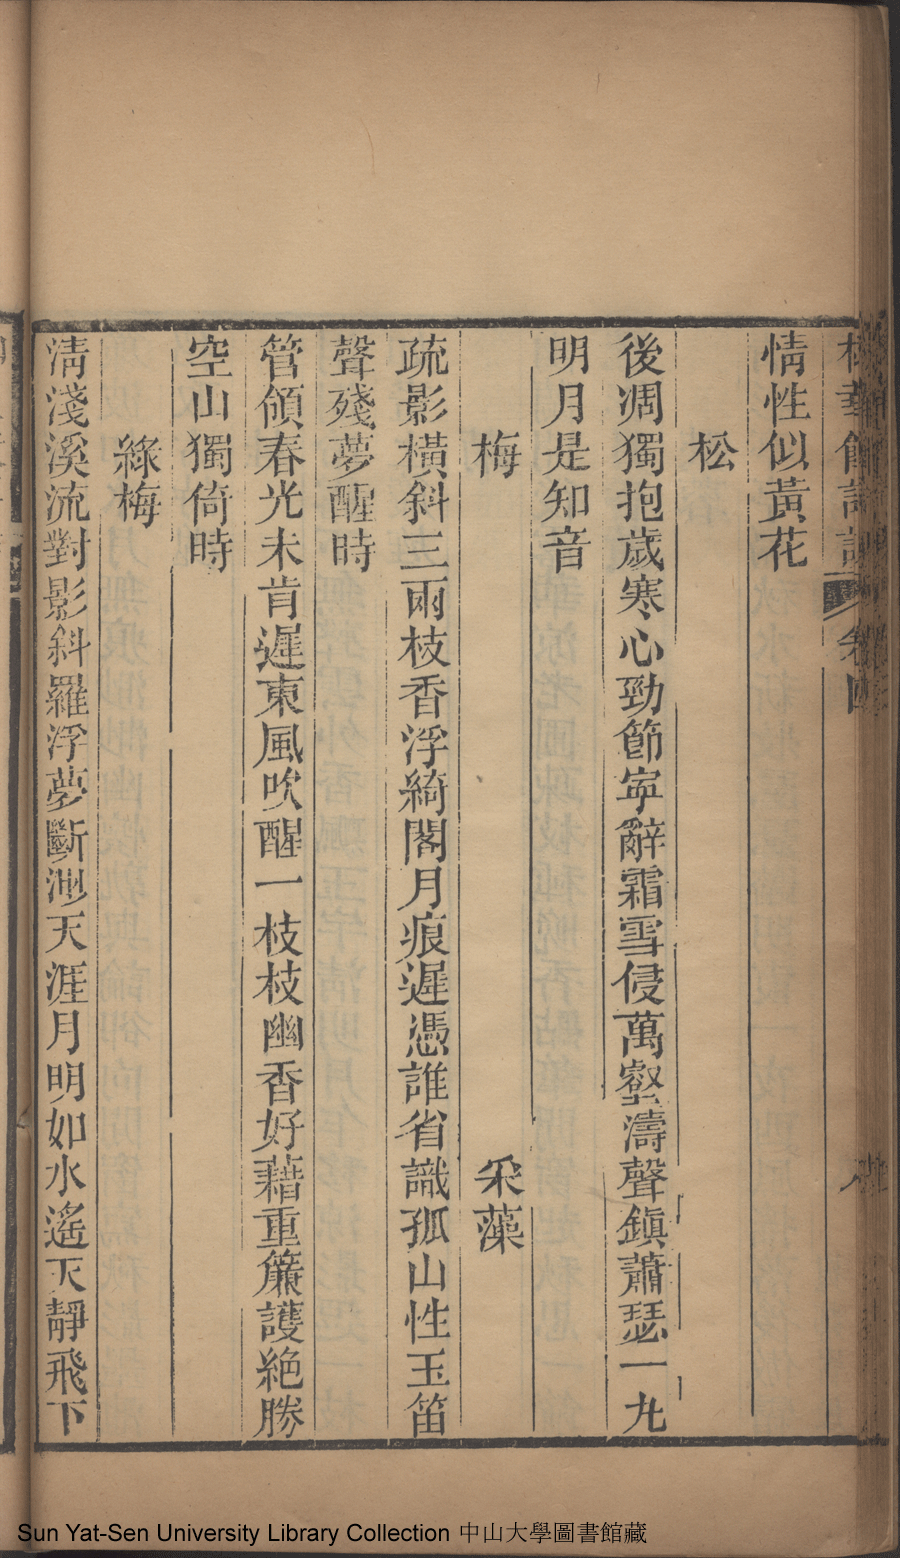 情性似黃花
松
後凋獨抱歲寒心勁節寧辭霜雪侵萬壑濤聲鎮蕭瑟一丸
明月是知音
梅 采藻
疏影橫斜三兩枝香浮綺閣月痕遲憑誰省識孤山性玉笛
聲殘夢醒時
管領春光未肯遲東風吹醒一枝枝幽香好藉重簾護絶勝
空山獨倚時
綠梅
淸淺溪流對影斜羅浮夢斷渺天涯月明如水遙天靜飛下
Sun Yat-Sen University Library Collection 中山大學圖書館藏